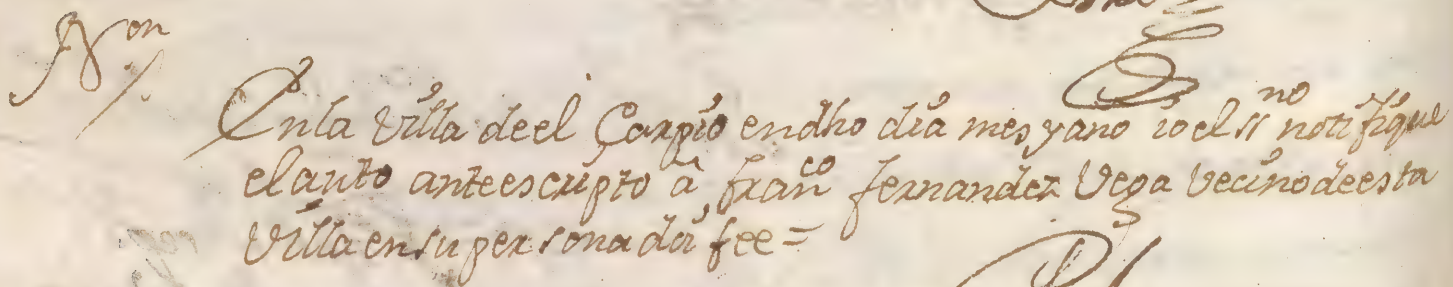 Non
En la Villa de el Carpio en dho dia mes y ano io el ssno notifique
el auto ante escripto â, franco fernandez Vega vecino de esta
Villa en su persona doi fee =